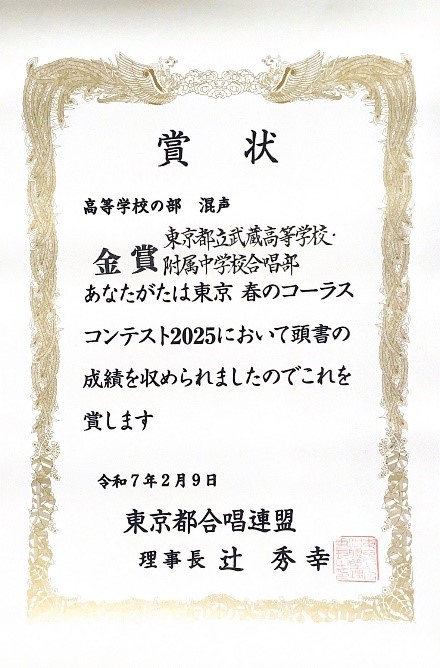 賞 状
高等学校の部 混声
金賞 東京都立武蔵高等学校・
附属中学校合唱部
あなたがたは東京 春のコーラス
コンテスト2025において頭書の
成績を収められましたのでこれを
賞します
令和7年2月9日
東京都合唱連盟
理事長 辻 秀 幸